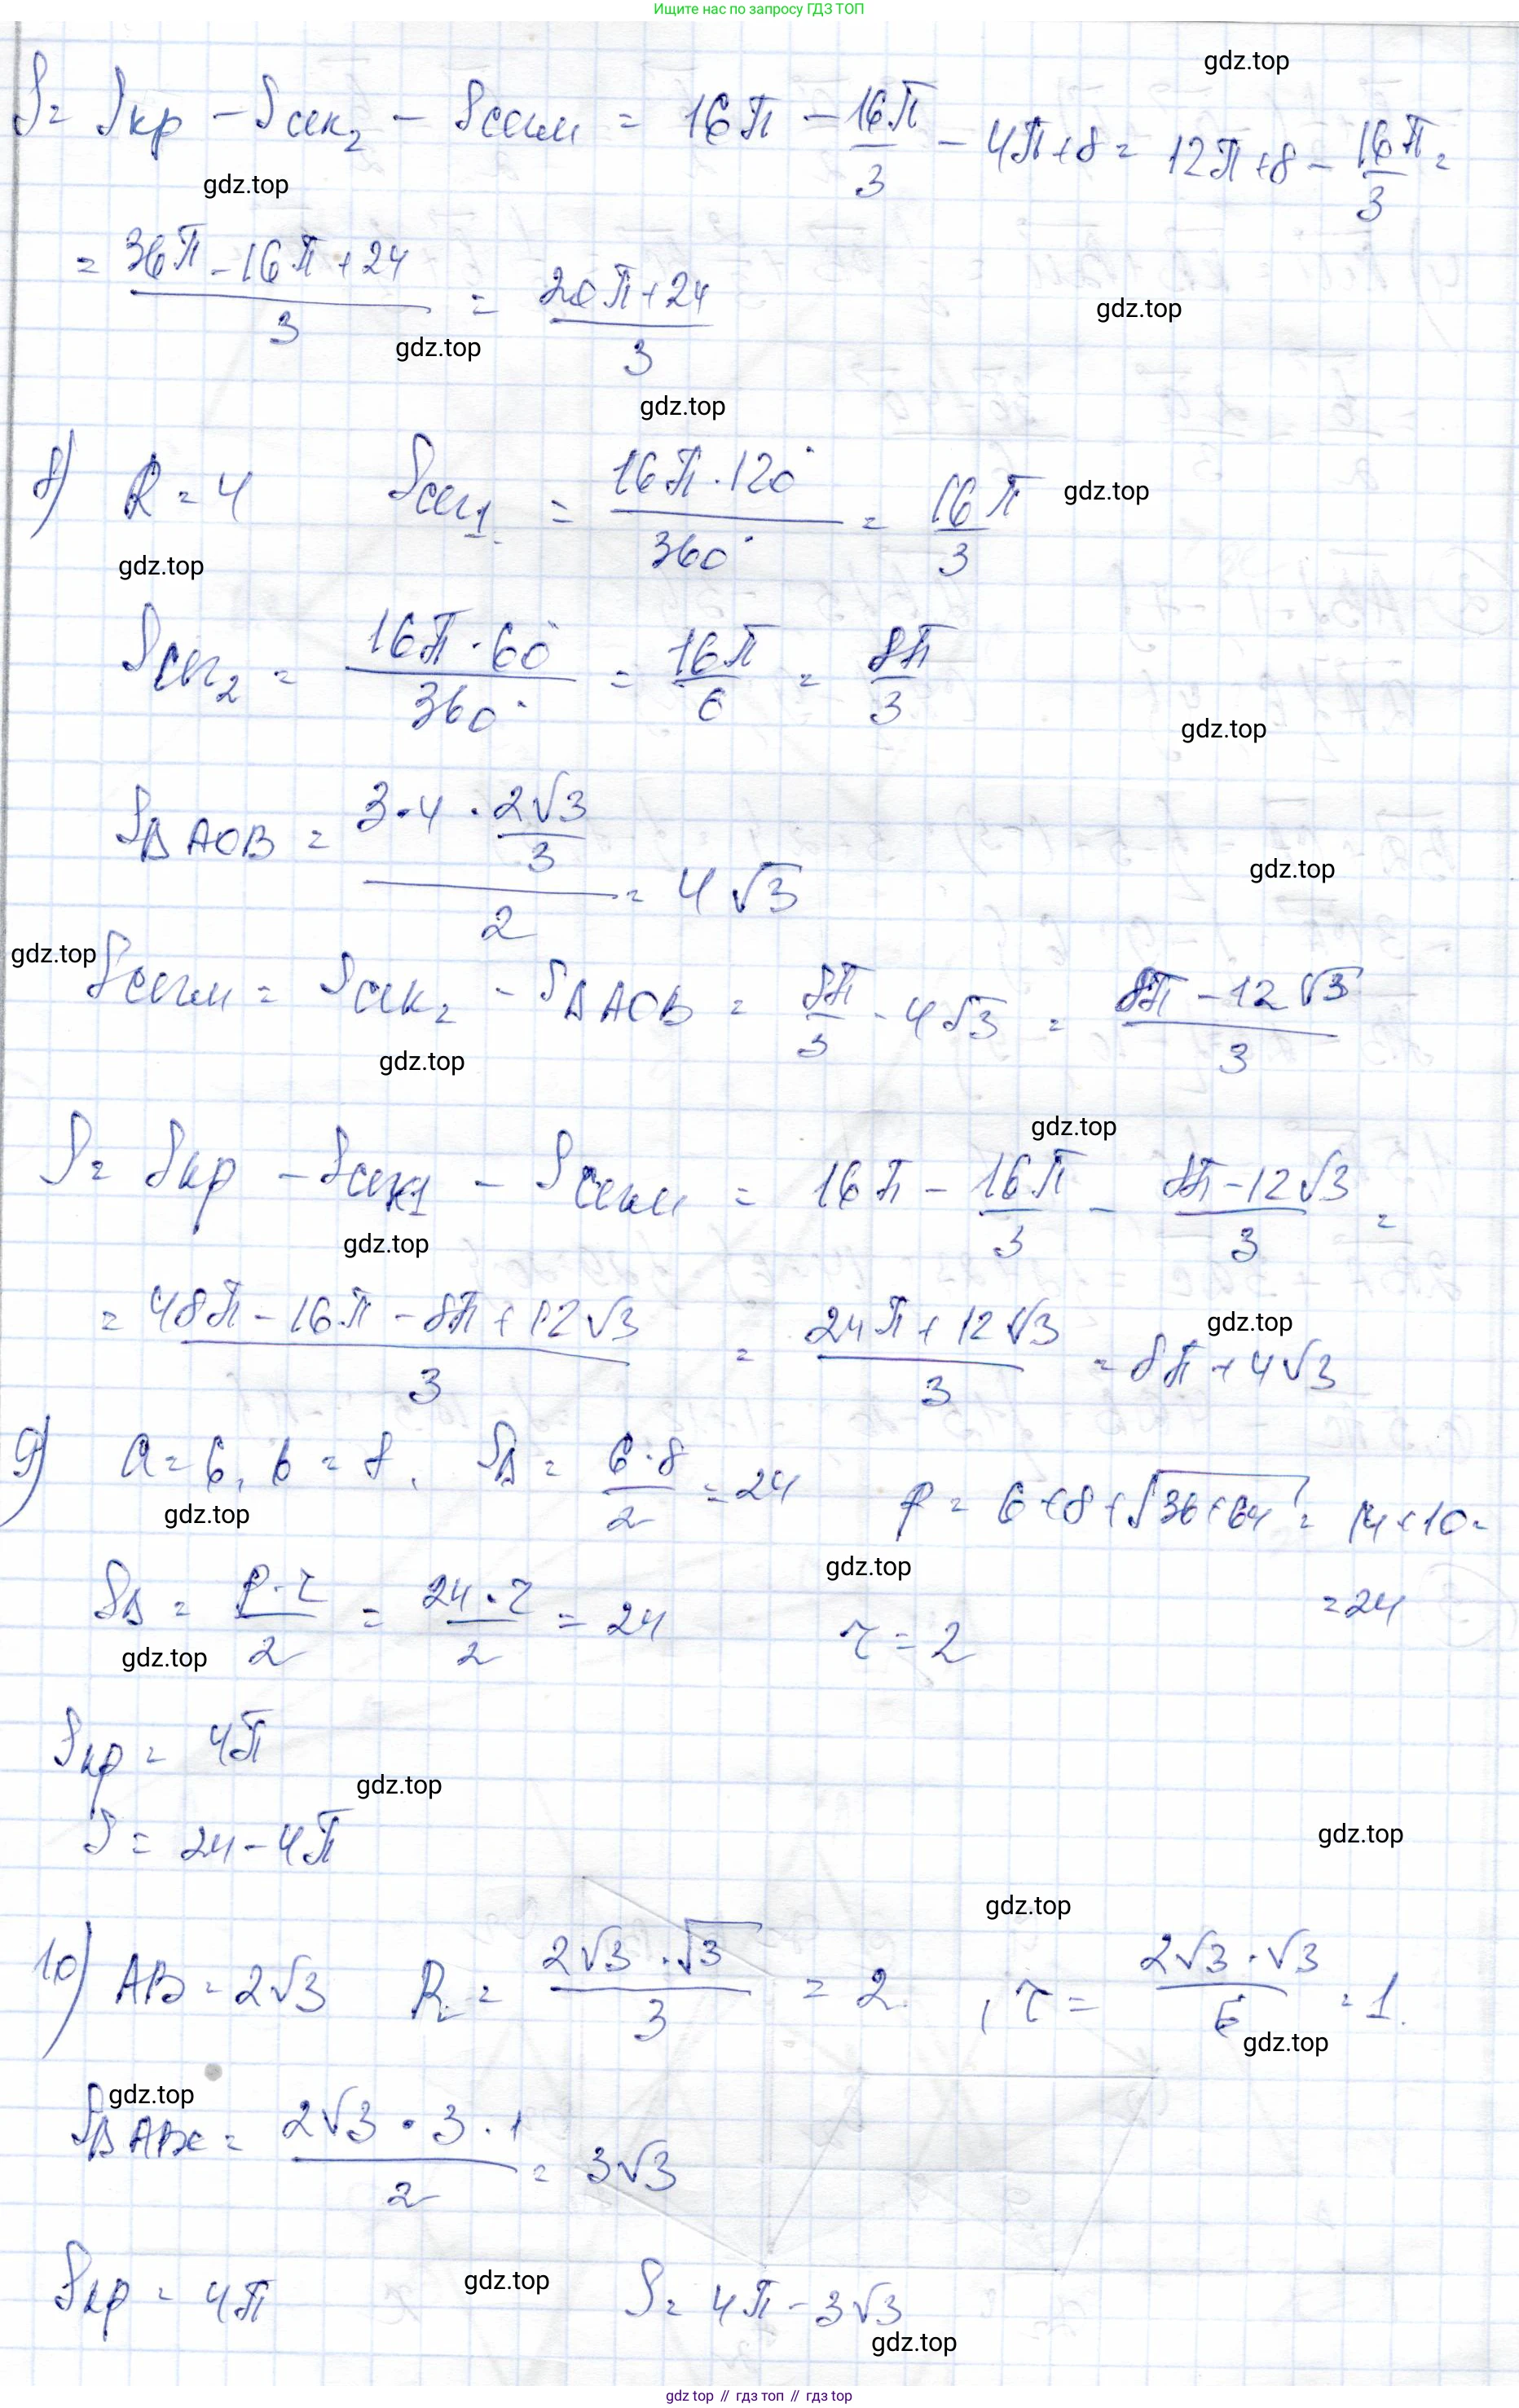 Ищите нас по запросу ГДЗ ТОП
gdz.top
S = Sкр - Sсек₂ - Sсегм = 16π - 16π/3 - 4π+8 = 12π+8 - 16π/3 =
gdz.top
= (36π - 16π + 24)/3 = (20π+24)/3
gdz.top
gdz.top
gdz.top
8) R = 4 Sсег₁ = (16π·120°)/360° = 16π/3
gdz.top
gdz.top
Sсег₂ = (16π·60°)/360° = 16π/6 = 8π/3
gdz.top
SΔAOB = (3·4·2√3/3)/2 = 4√3
gdz.top
gdz.top
Sсегм = Sсек₂ - SΔAOB = 8π/3 - 4√3 = (8π - 12√3)/3
gdz.top
gdz.top
S = Sкр - Sсек1 - Sсегм = 16π - 16π/3 - (8π-12√3)/3 =
gdz.top
= (48π - 16π - 8π + 12√3)/3 = (24π + 12√3)/3 = 8π + 4√3
gdz.top
9) a = 6, b = 8. SΔ = (6·8)/2 = 24 P = 6+8+√(36+64) = 14+10 =
gdz.top
gdz.top
= 24
SΔ = (P·r)/2 = (24·r)/2 = 24 r = 2
gdz.top
Sкр = 4π
gdz.top
S = 24 - 4π
gdz.top
gdz.top
10) AB = 2√3 R = (2√3·√3)/3 = 2, r = (2√3·√3)/6 = 1.
gdz.top
gdz.top
SΔABC = (2√3·3·1)/2 = 3√3
gdz.top
Sкр = 4π S = 4π - 3√3
gdz.top
gdz top // гдз топ // гдз top